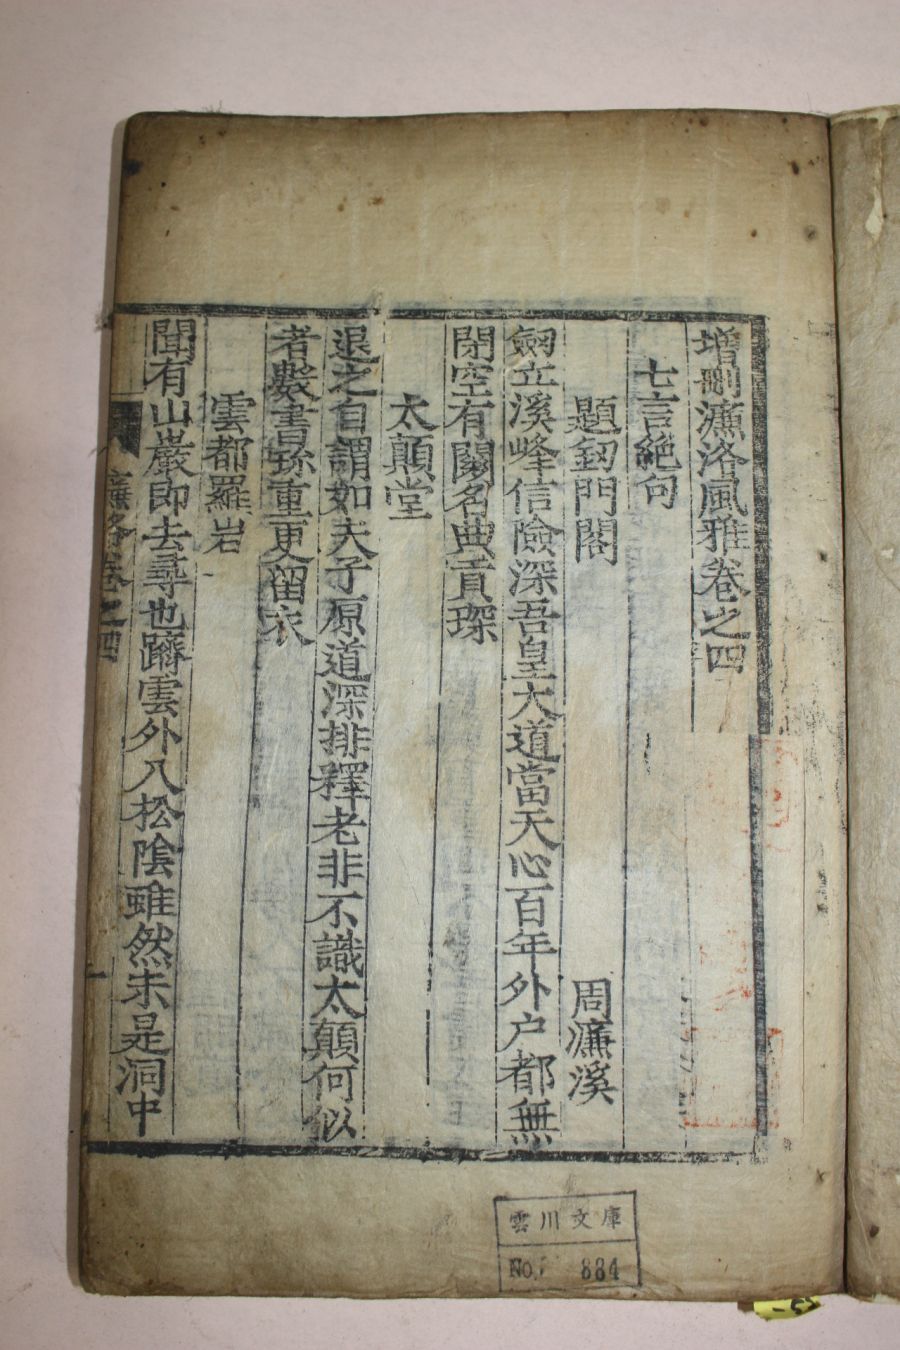 增刪濂洛風雅卷之四
七言絶句
題釰門閣 周濂溪
劒立溪峰信險深吾皇大道當天心百年外户都無
閉空有關名典貢琛
太顛堂
退之自謂如夫子原道深排釋老非不識太顛何似
者數書珎重更留衣
雲都羅岩
聞有山巖即去尋也躋雲外入松陰雖然未是洞中
濂洛卷之四 一
雲川文庫
No. 884